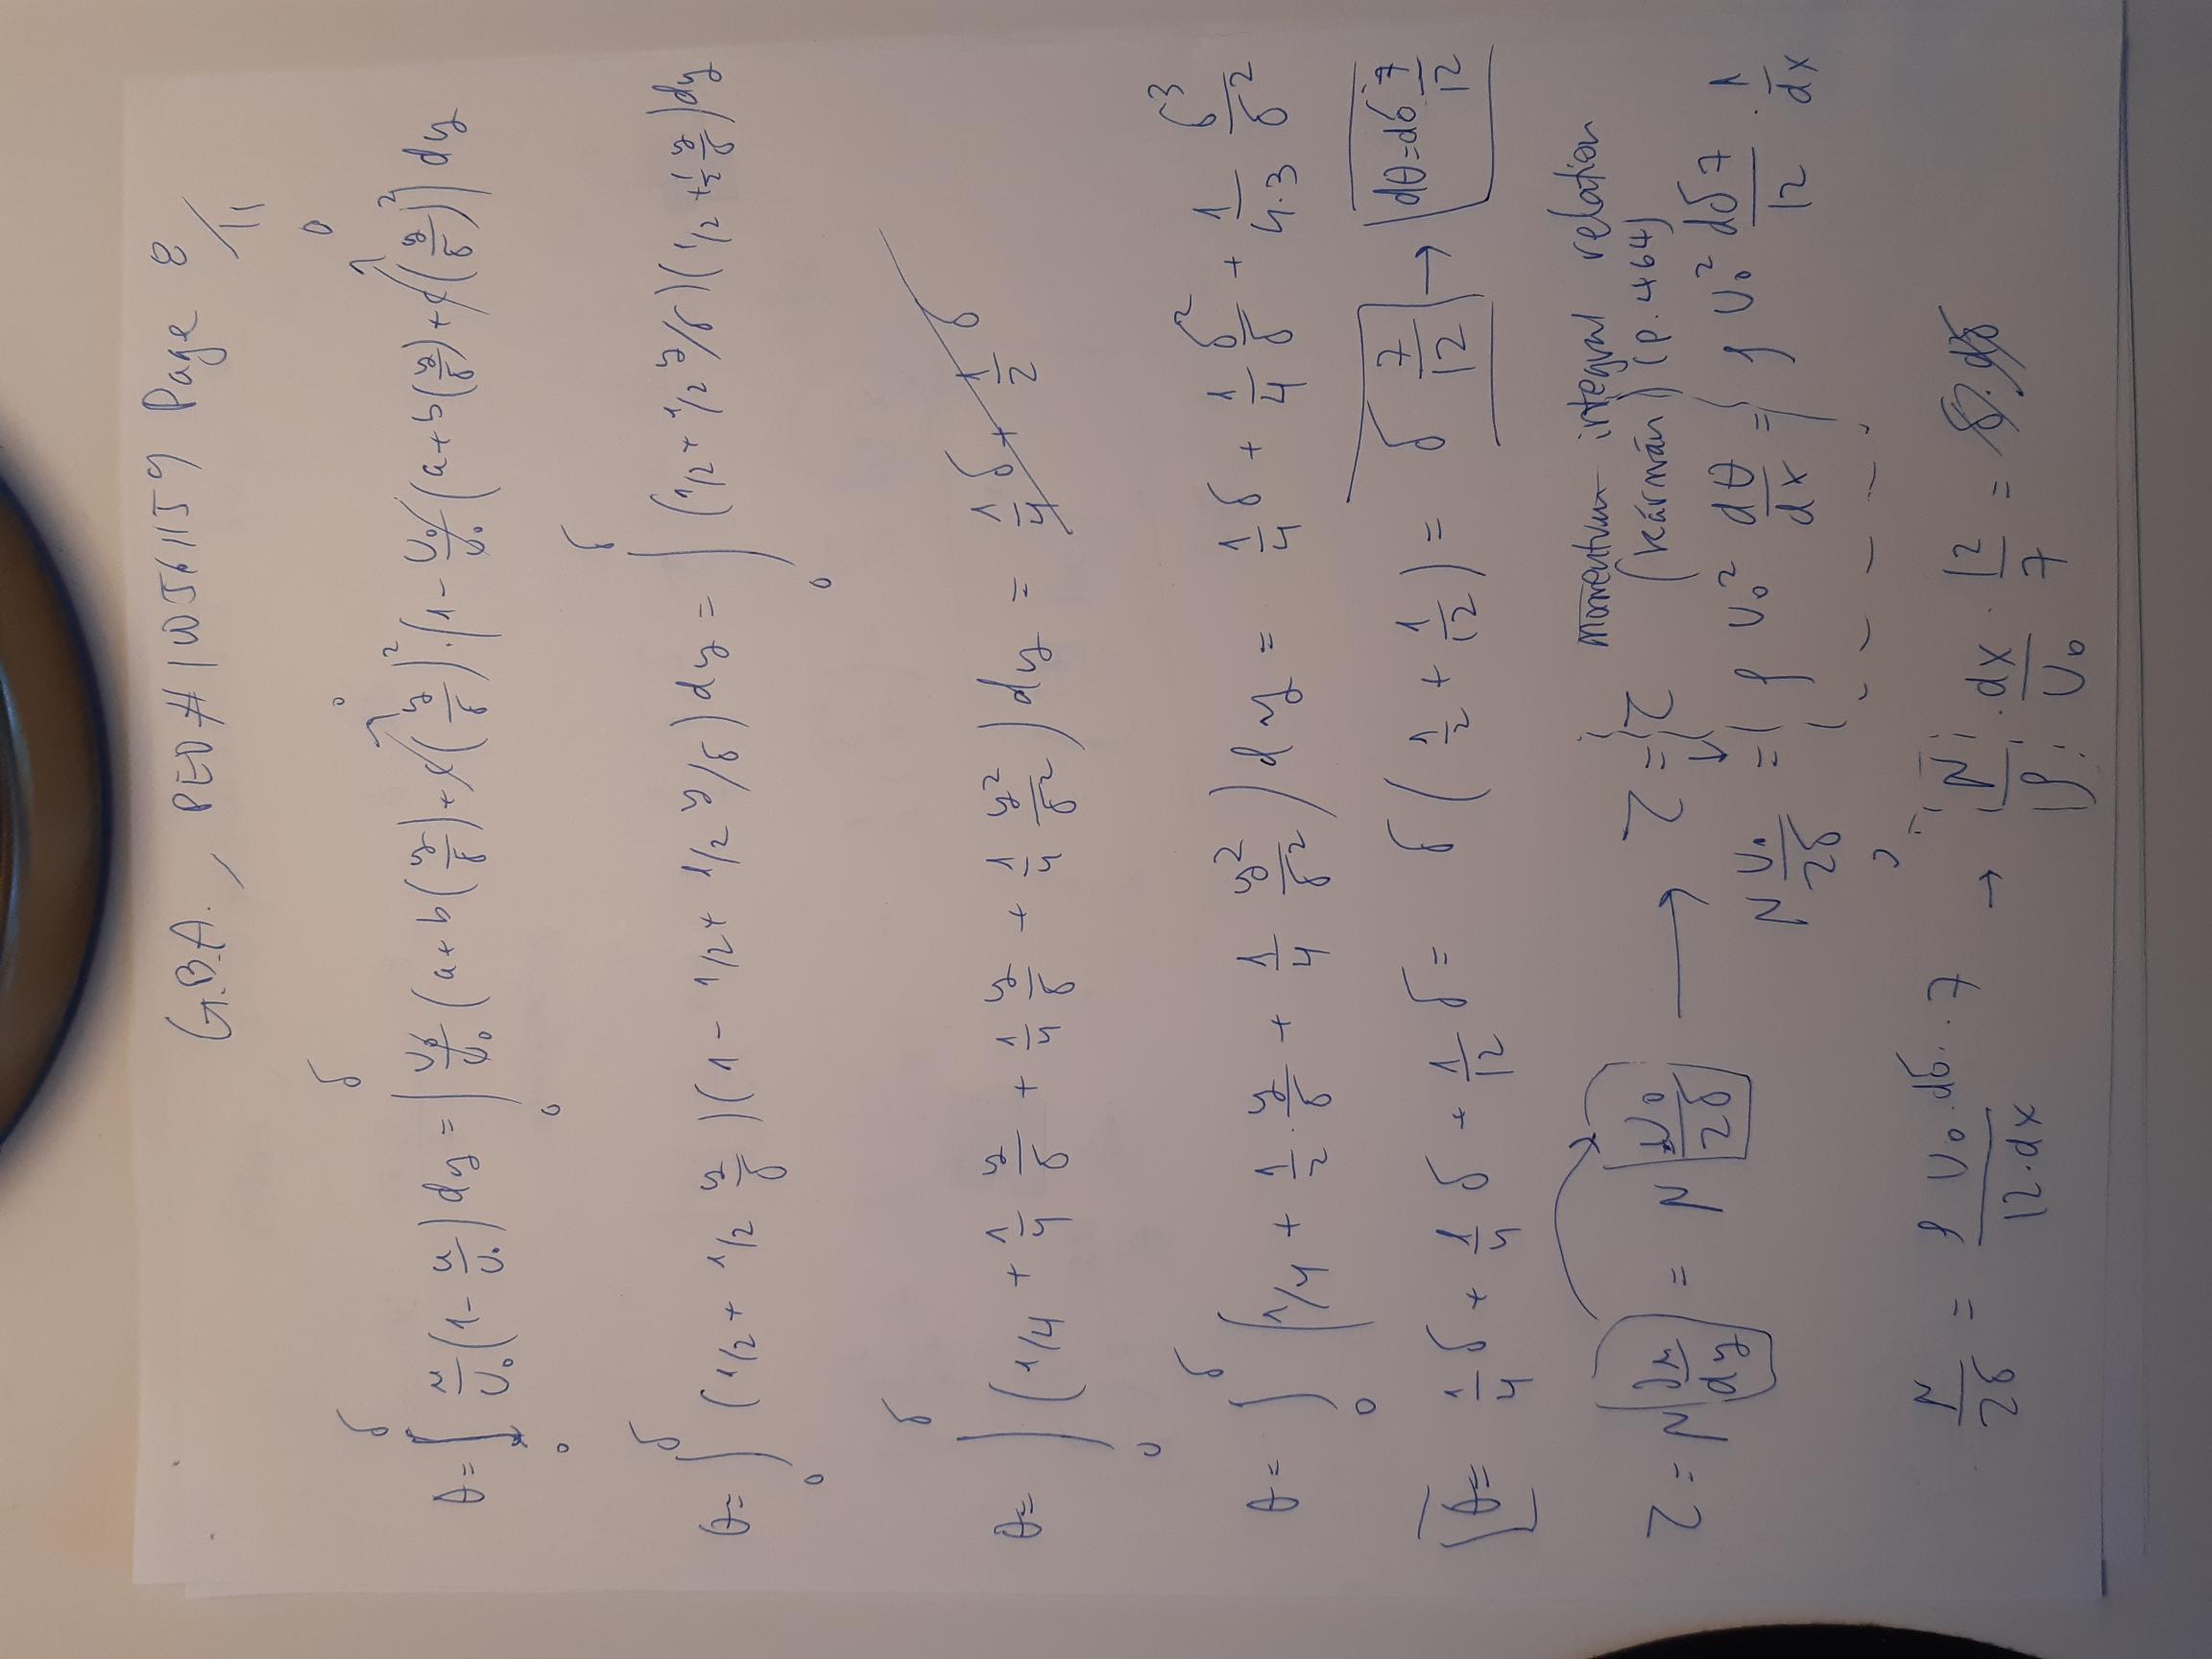 G.B.A., PED#10561159 Page 8/11
θ = ∫₀^δ u/U₀ (1 - u/U₀) dy = ∫₀^δ U₀/U₀ (a + b(y/δ) + c(y/δ)² · (1 - U₀/U₀ (a + b(y/δ) + c(y/δ)²) dy
0 0
θ = ∫₀^δ (1/2 + 1/2 y/δ)(1 - 1/2 + 1/2 y/δ) dy = ∫₀^δ (1/2 + 1/2 y/δ)(1/2 + 1/2 y/δ) dy
θ = ∫₀^δ (1/4 + 1/4 y/δ + 1/4 y/δ + 1/4 y²/δ²) dy = 1/4 δ + 1/2 δ
θ = ∫₀^δ (1/4 + 1/2 · y/δ + 1/4 y²/δ²) dy = 1/4 δ + 1/4 δ²/δ + 1/4·3 δ³/δ²
θ = 1/4 δ + 1/4 δ + 1/12 δ = δ(1/2 + 1/12) = δ 7/12 → dθ = dδ 7/12
momentum integral relation
τ = μ ∂u/dy = μ U₀/2δ → τ = τ (Kármán) (p. 464)
μ U₀/2δ = ρ U₀² dθ/dx = ρ U₀² dδ 7/12 · 1/dx
μ/2δ = ρ U₀ · dδ · 7/12·dx → μ/ρ · dx/U₀ · 12/7 = δ·dδ